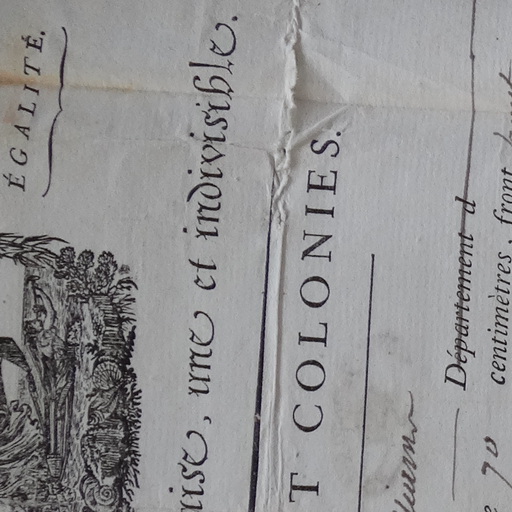 ÉGALITÉ.
une et indivisible.
T COLONIES.
Département d
70 centimètres, front